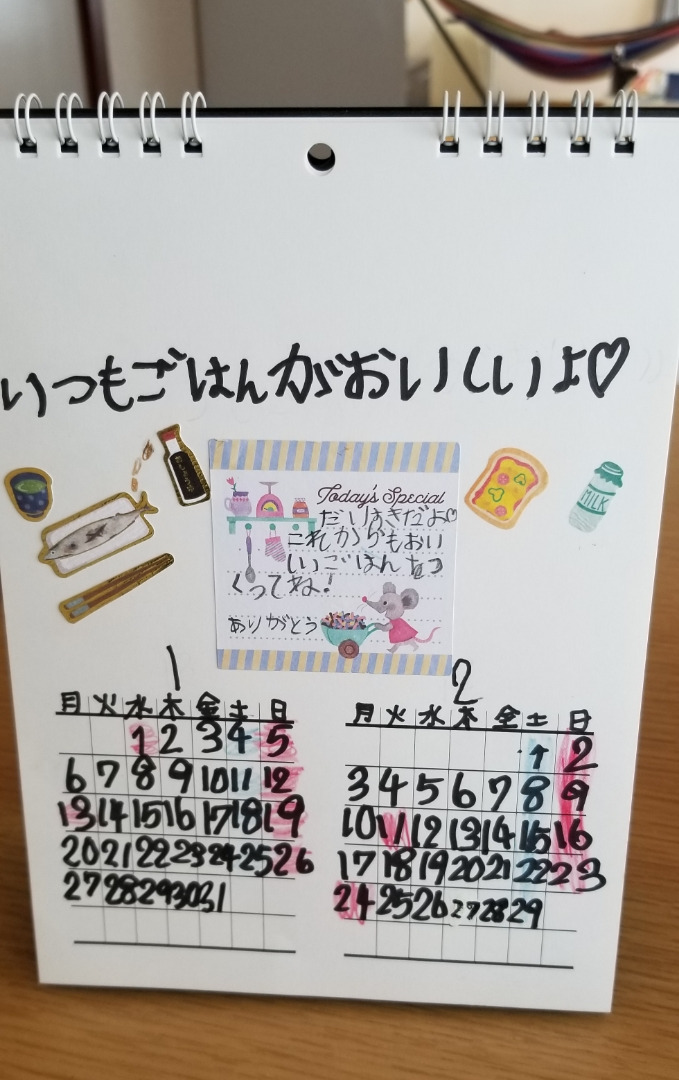 いつもごはんがおいしいよ♡
Today's Special
だいすきだよ♡
これからもおい
しいごはんをつ
くってね!
ありがとう
MILK
1
月 火 水 木 金 土 日
1 2 3 4 5
6 7 8 9 10 11 12
13 14 15 16 17 18 19
20 21 22 23 24 25 26
27 28 29 30 31
2
月 火 水 木 金 土 日
1 2
3 4 5 6 7 8 9
10 11 12 13 14 15 16
17 18 19 20 21 22 23
24 25 26 27 28 29